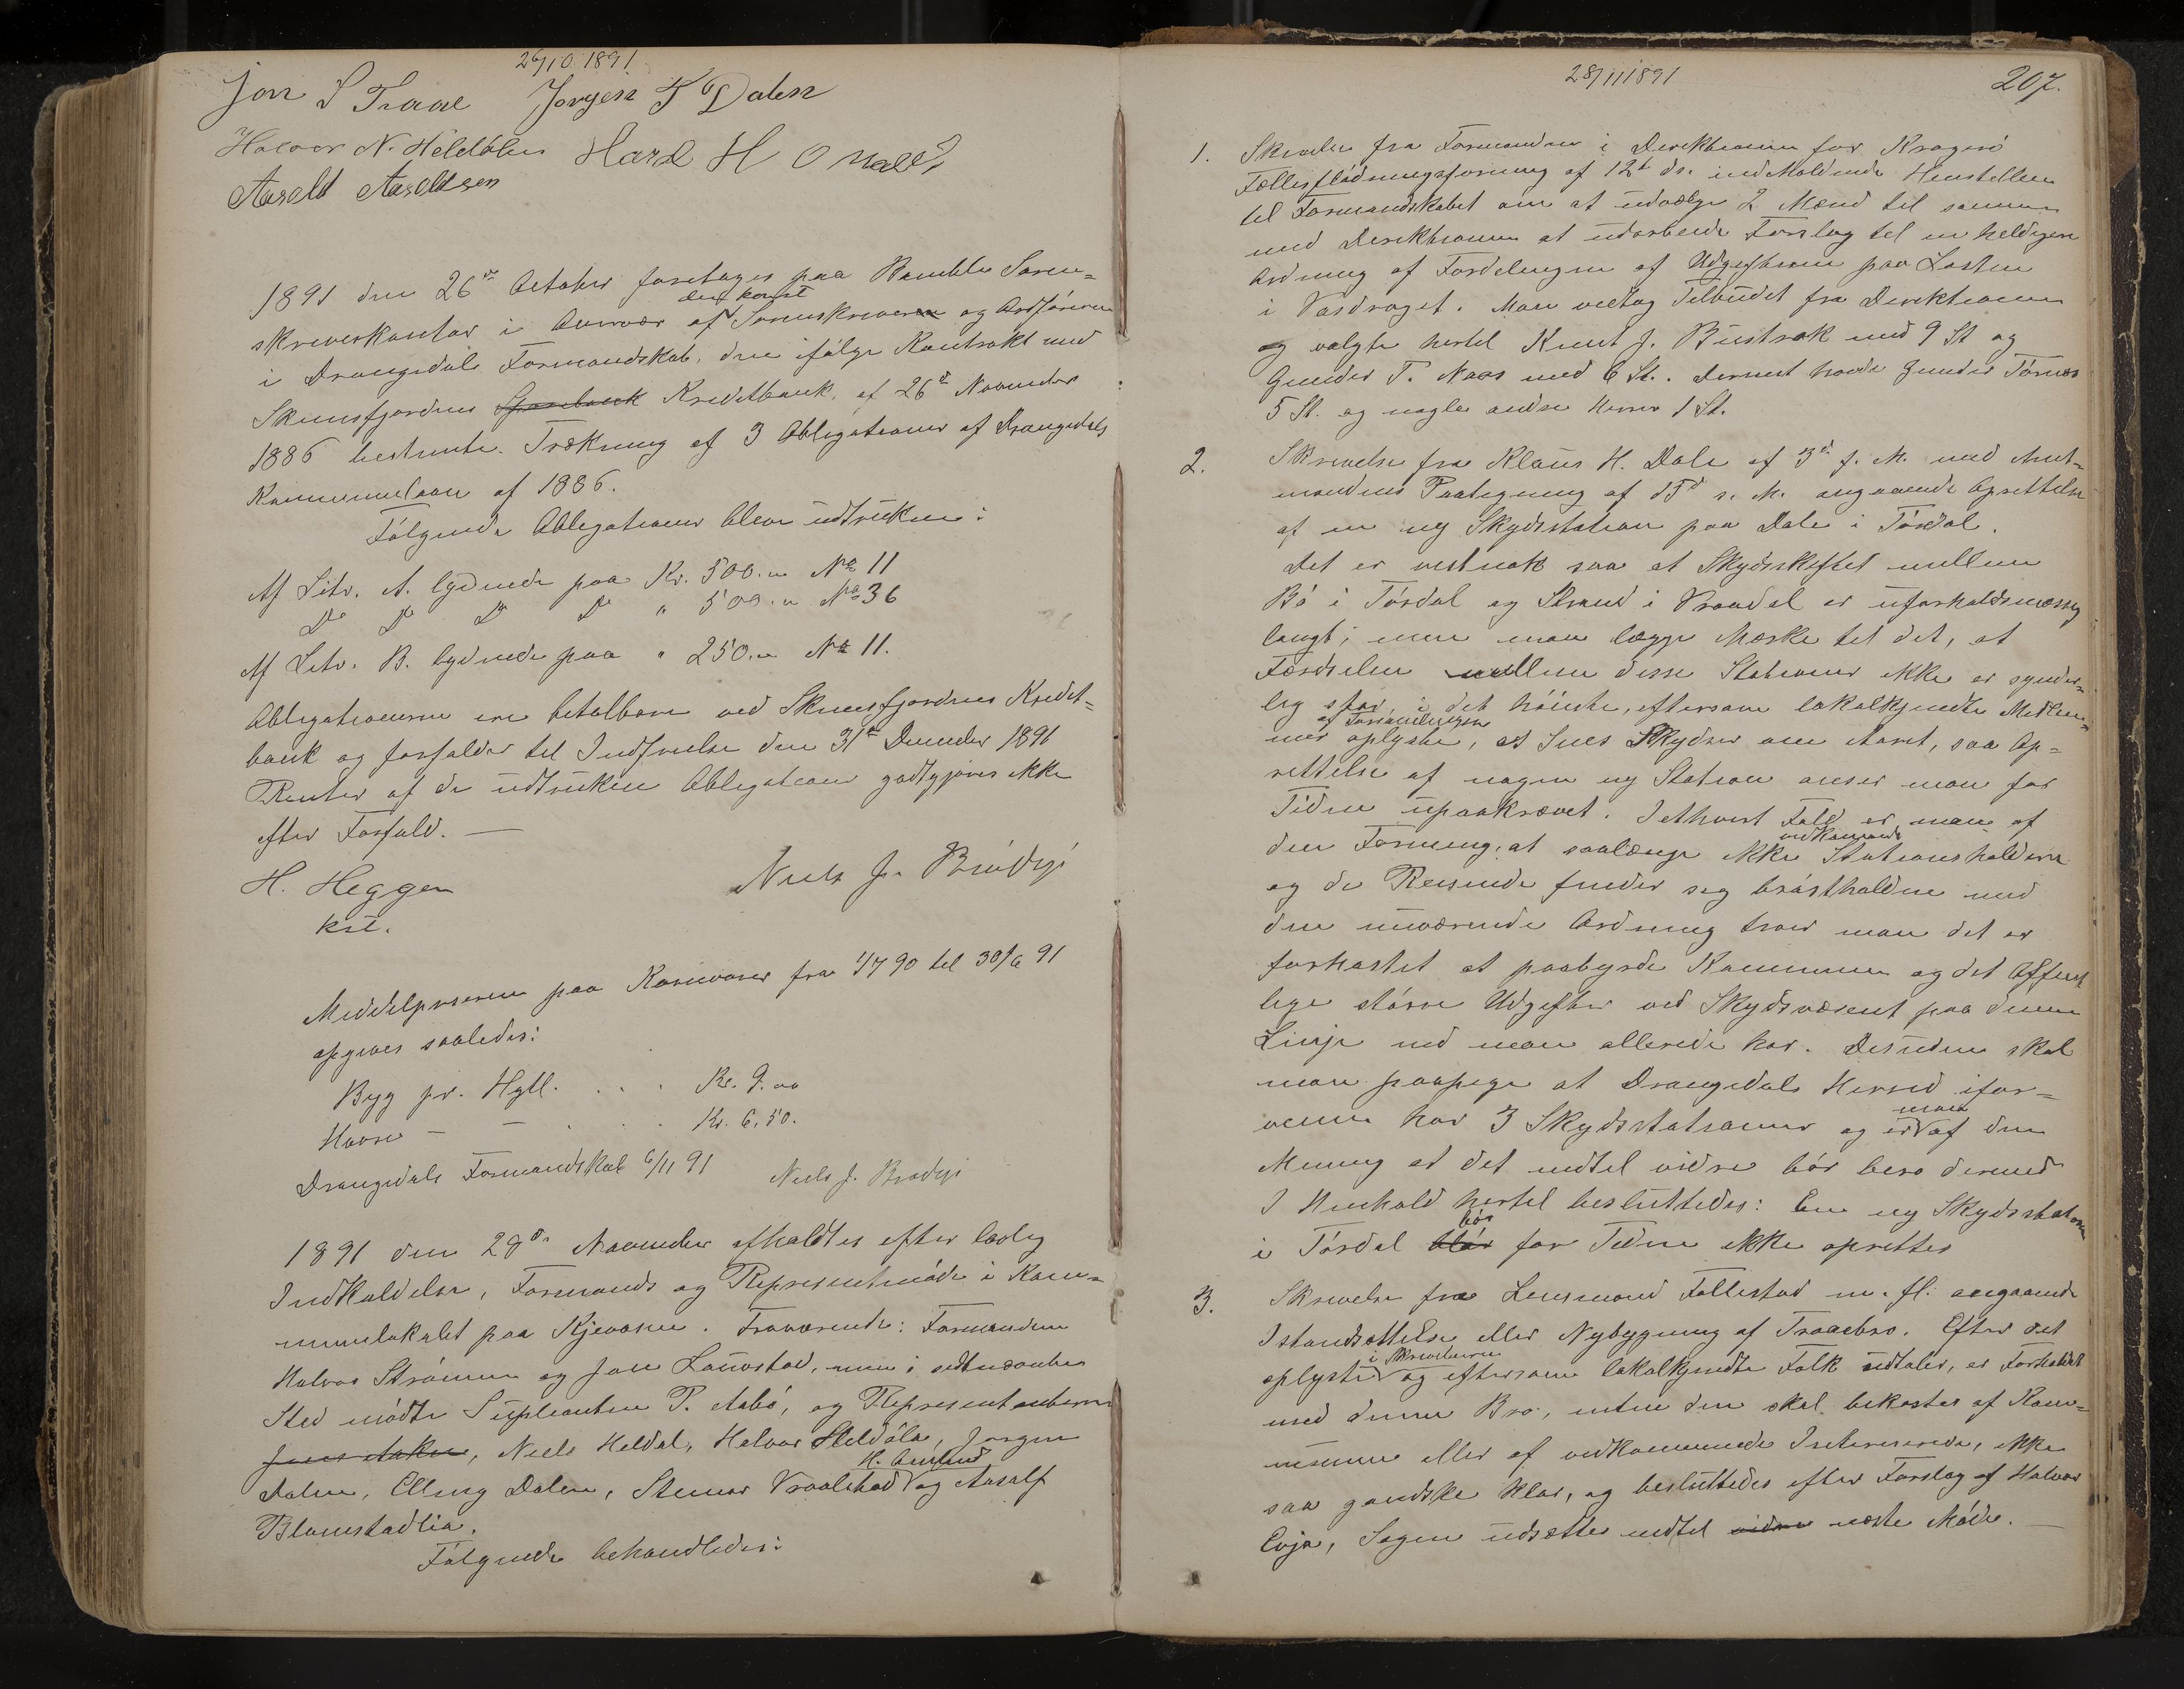 26/10 1891
Jon S Traae Jørgen T Dalen
Halvor N. Heldølen Harel H O
Aasold Aasoldsen
1891 den 26de October foretages paa Bamble Soren=
skriverkontor i Overvær af den konst Sorenskriver og Ordføreren
i Drangedals Formandskab, den ifølge Kontrakt med
Skiensfjordens Sparebank Kreditbank, af 26de November
1886 bestemte Trækning af 3 Obligationer af Drangedals
Kommunelaan af 1886.
Følgende Obligationer blev udtrukne:
Af Litr. A. lydende paa Kr. 500.- No 11
Do Do Do Do " 500.- No 36
Af Litr. B. lydende paa " 250.- No 11.
Obligationerne ere betalbare ved Skiensfjordens Kredit=
bank og forfalder til Indfrielse den 31te December 1891
Renter af de udtrukne Obligationer godtgjøres ikke
efter Forfald. —
H. Heggen Niels J. Brødsjø
kst.
Middelpriserne paa Kornvarer fra 1/7 90 til 30/6 91
opgives saaledes:
Byg pr. Hgtl. . . . Kr. 9.00
Havre — — . . . Kr. 6.50.
Drangedals Formandskab 6/11 91 Niels J. Brødsjø
1891 den 28de November afholdtes efter lovlig
Indkaldelse, Formands og Representmøde i Kom=
munelokalet paa Kjevosen. Fraværende: Formændene
Halvor Strømme og Jon Lauvstad, men i sidtnævntes
Sted mødte Supleanten P. Aabø, og Representanterne
Jens Aaken, Niels Heldal, Halvor Heldøla, Jørgen
Dalen, Elling Dalen, Steinar Vraalstad H. Austad og Aasulf
Blomstadlia.
Følgende behandledes:
28/11 1891
207.
1. Skrivelse fra Formanden i Direktionen for Kragerø
Fællesflødningsforening af 12te ds. indeholdende Henstillen
til Formandskabet om at udvælge 2 Mænd til sammen
med Direktionen at udarbeide Forslag til en heldigere
Ordning af Fordelingen af Udgifterne paa Lasten
i Vasdraget. Man vedtog Tilbudet fra Direktionen
og valgte hertil Knut J. Bustrak med 9 St og
Gunder T. Naas med 6 St. Dernest havde Gunder Tørnes
5 St. og nogle andre Herrer 1 St.
2. Skrivelse fra Klaus H. Dale af 3de f. M. med Amt=
mandens Paategning af 15de s. M. angaaende Oprettelse
af en ny Skydsstation paa Dale i Tørdal.
Det er vistnok saa at Skydsskiftet mellem
Bø i Tørdal og Strand i Vraadal er uforholdsmæssig
langt; men man lægge Mærke til det, at
Færdselen mellem disse Stationer ikke er synder=
lig stor, i det høieste, eftersom lokalkjendte Medlem=
mer af Forsamlingen oplyste, et Snes Skydser om Aaret, saa Op=
rettelse af nogen ny Station anser man for
Tiden upaakrævet. I ethvert Fald er man af
den Formening, at saalænge ikke vedkommende Stationsholdere
og de Reisende finder seg brøstholdne med
den nuværende Ordning tror man det er
forkastet at paabyrde Kommunen og det Offent
lige større Udgifter ved Skydsvæsenet paa denne
Linje end man allerede har. Desuden skal
man paapege at Drangedals Herred ifor=
veien har 3 Skydsstationer og er man af den
Mening at det indtil videre bør bero dermed
I Henhold hertil besluttedes: En ny Skydsstation
i Tørdal blir bør for Tiden ikke oprettes
3. Skrivelse fra Lensmand Follestad m. fl. angaaende
Istandsættelse eller Nybygning af Traaebro. Efter det
oplyste i Skrivelserne og eftersom lokalkjendte Folk udtaler, er Forholdet
med denne Bro, enten den skal bekostes af Kom=
munen eller af vedkommende Interesserede, ikke
saa gandske klar, og besluttedes efter Forslag af Halvor
Evja, Sagen udsættes indtil videre næste Møde. —